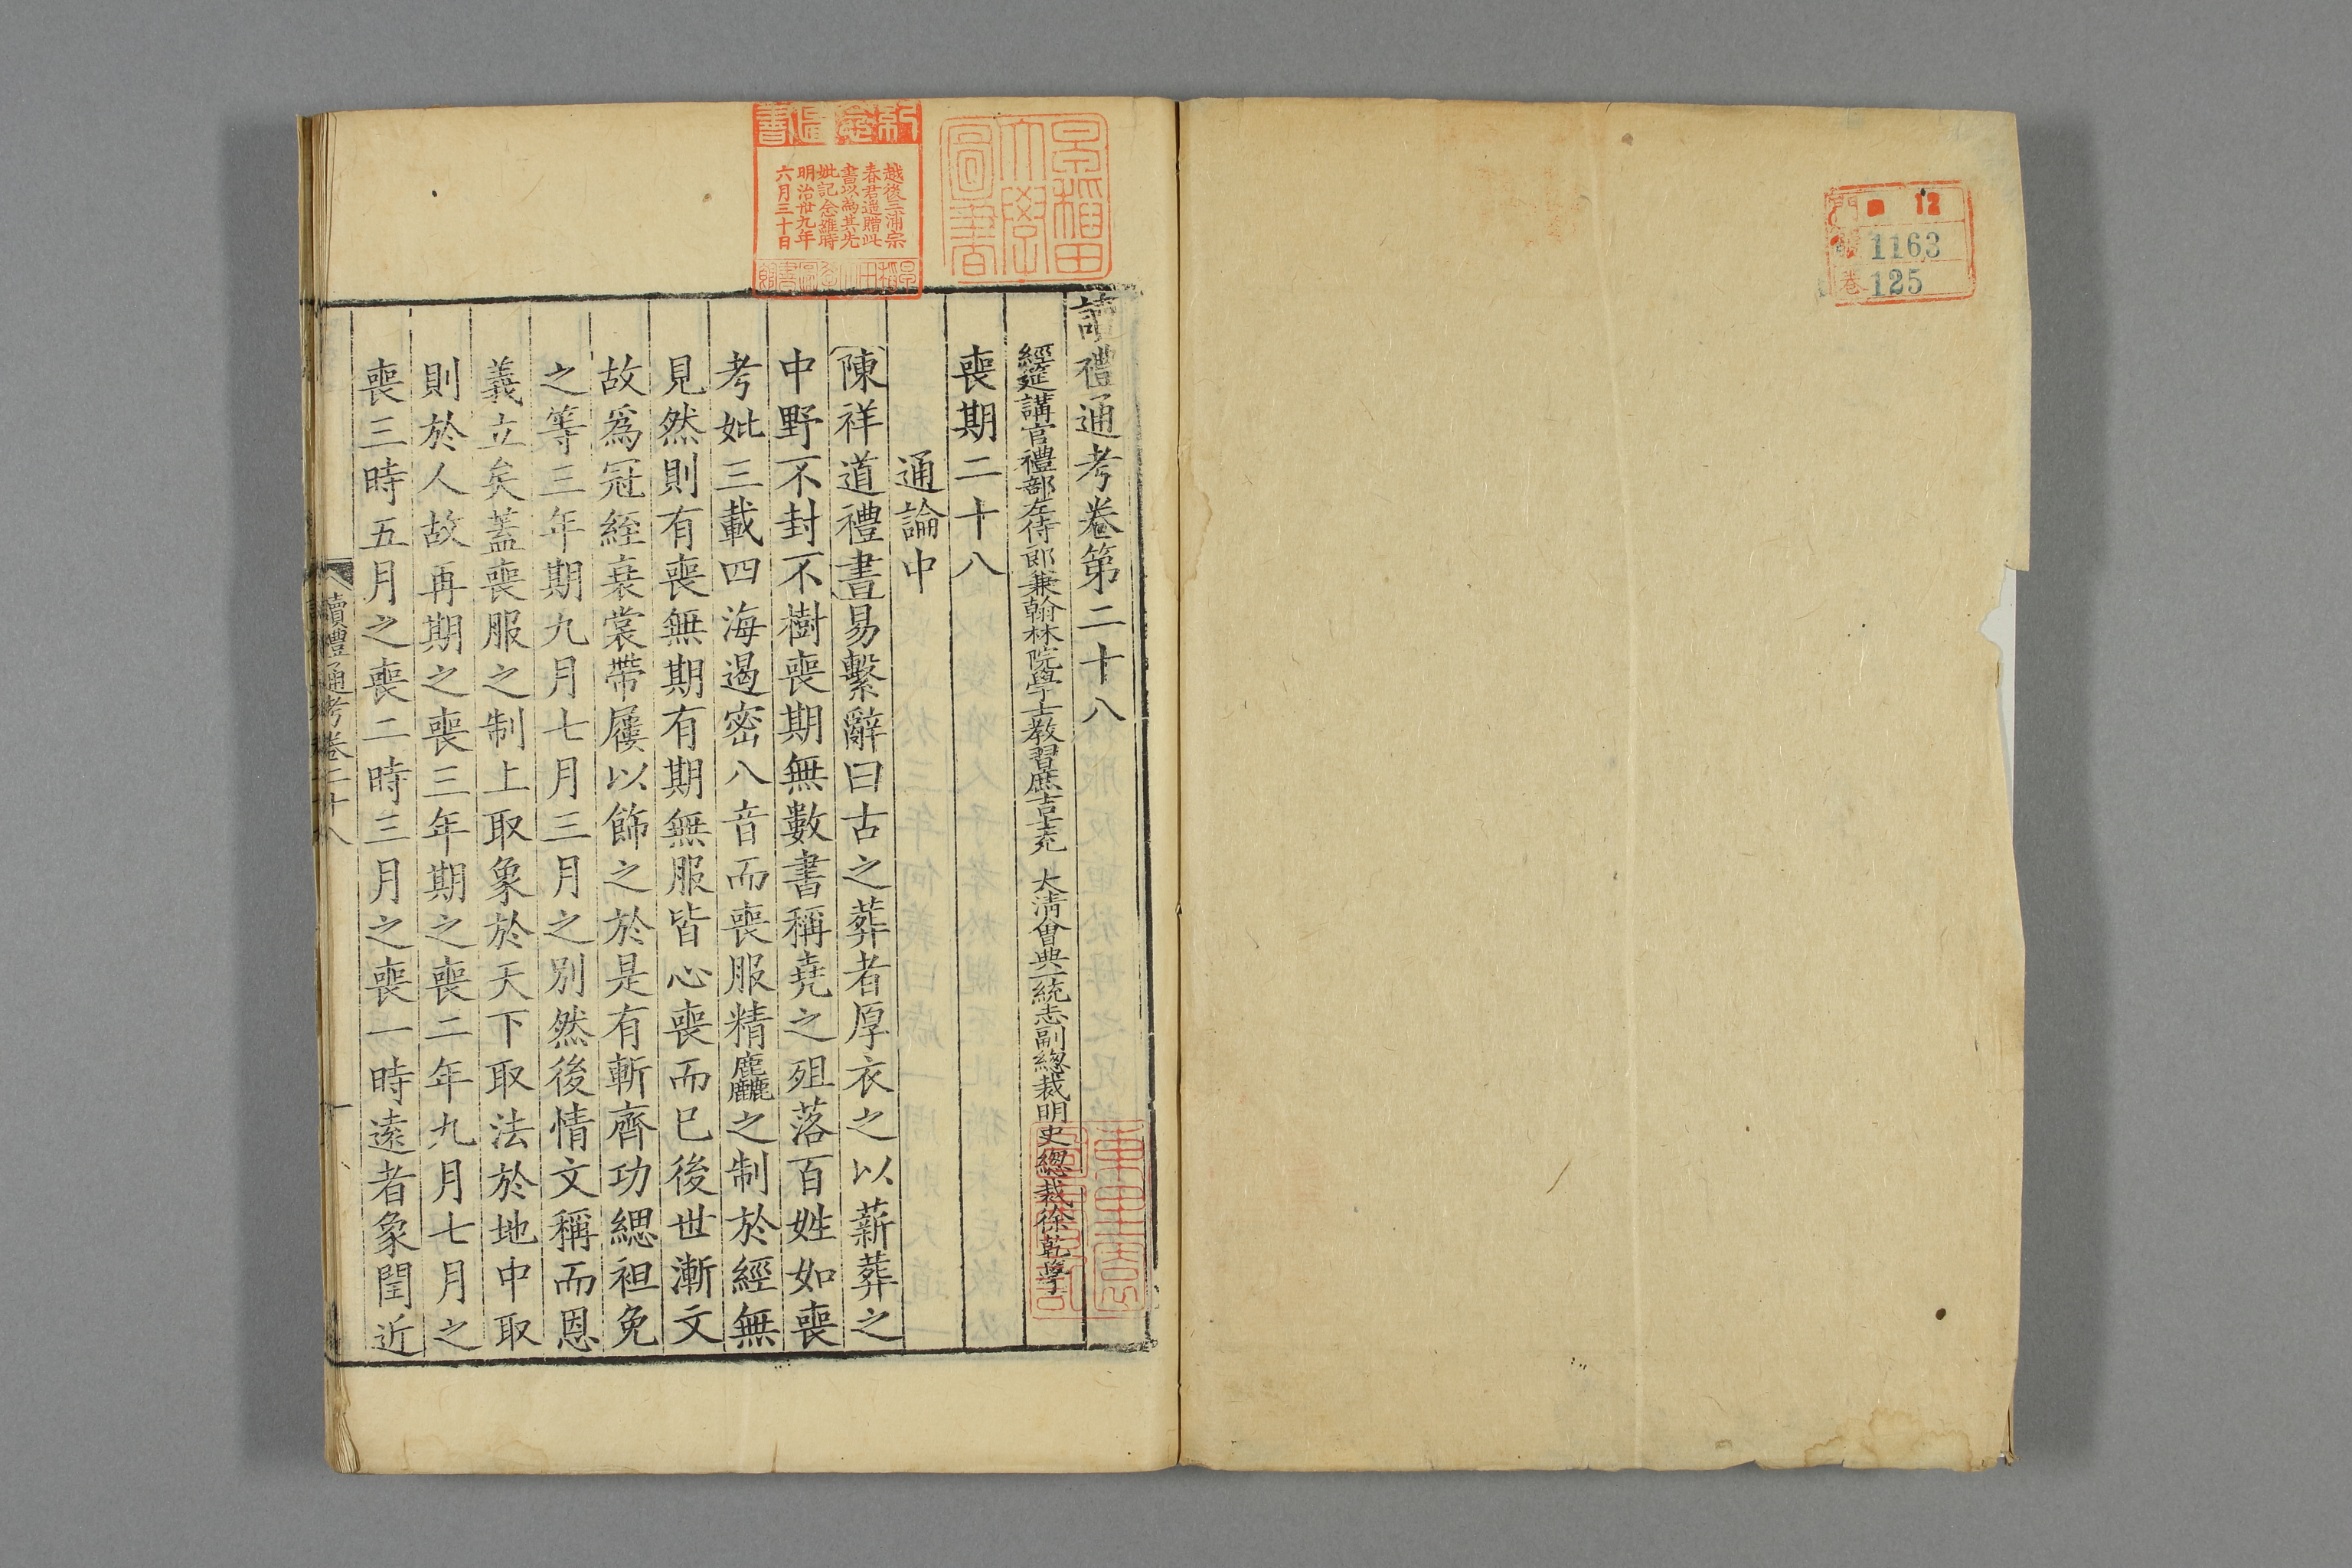 門 12
號 1163
卷 125
早稲田大學圖書
紀念圖書
越後三浦宗
春君遥贈此
書以為其先
妣記念雖時
明治卅九年
六月三十日
早稲田大學圖書館
讀禮通考卷第二十八
經筵講官禮部左侍郎兼翰林院學士教習庶吉士充 大清會典一統志副總裁明史總裁徐乾學
喪期二十八
通論中
陳祥道禮書易繫辭曰古之葬者厚衣之以薪葬之
中野不封不樹喪期無數書稱堯之殂落百姓如喪
考妣三載四海遏密八音而喪服精麤之制於經無
見然則有喪無期有期無服皆心喪而已後世漸文
故爲冠絰衰裳帶屨以飾之於是有斬齊功緦袒免
之等三年期九月七月三月之別然後情文稱而恩
義立矣蓋喪服之制上取象於天下取法於地中取
則於人故再期之喪三年期之喪二年九月七月之
喪三時五月之喪二時三月之喪一時遠者象閏近
讀禮通考卷二十八 一